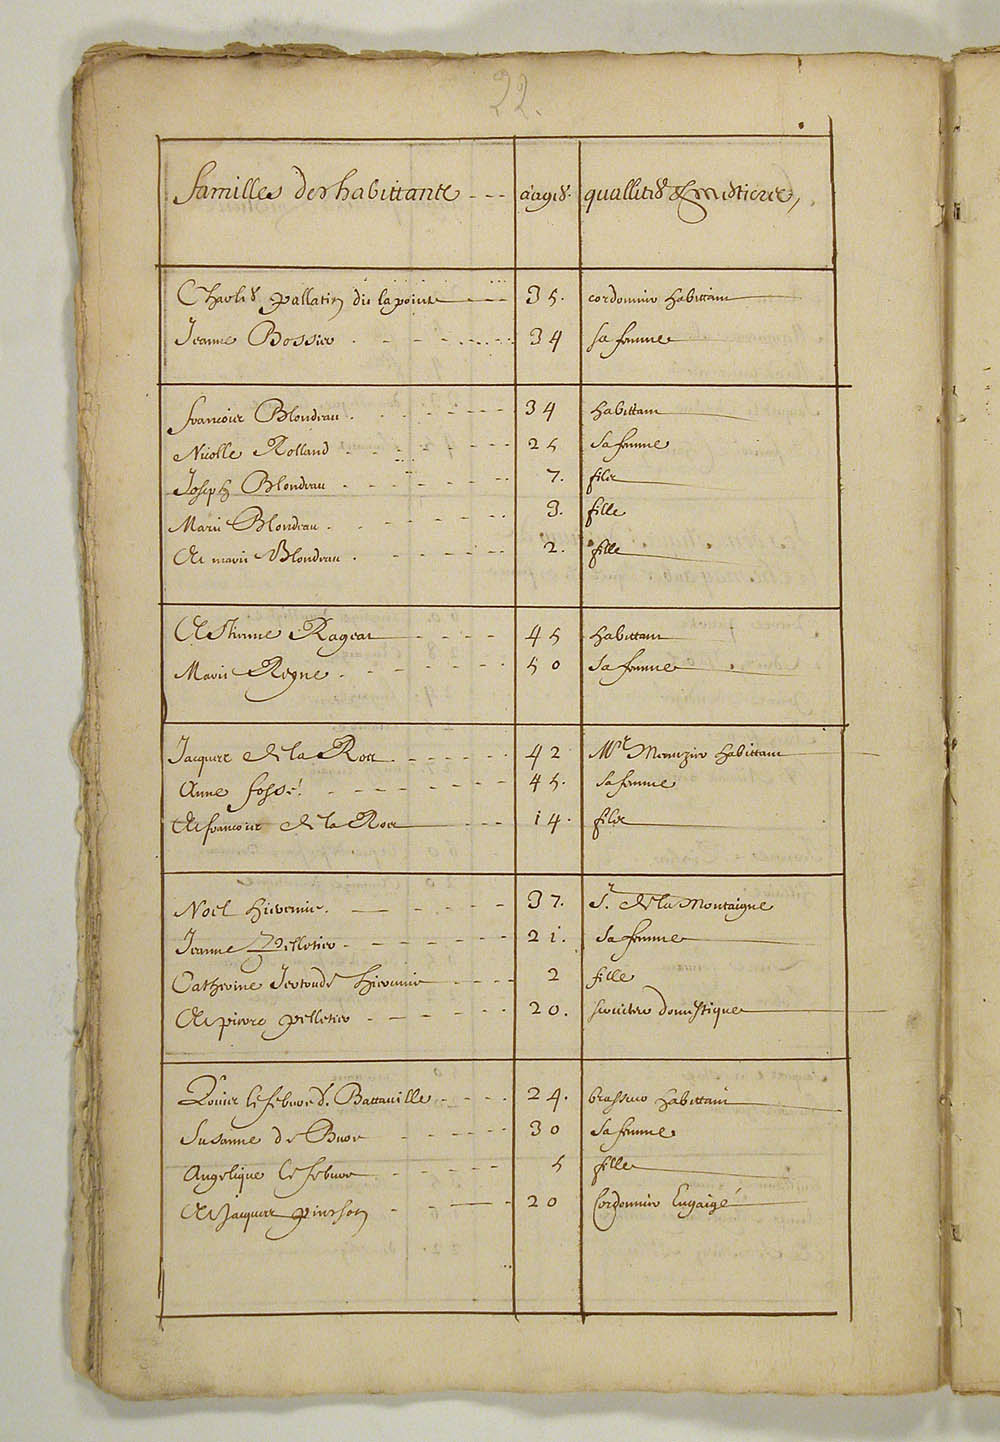 22.
familles des habittants --- aages. quallités & mestieres,
Charles pallatin dit lapointe --- 35. cordonnier habittant
Jeanne Bossier . - - - - 34 sa femme
francois Blondeau . - - - - 34 habittant
Nicolle Rolland - - - - 25 sa femme
Joseph Blondeau . - - - - 7. filz
Marie Blondeau . - - - - 3. fille
Et marie Blondeau . - - - - 2. fille
Estienne Rageau - - - - 45 habittant
Marie Regne . - - - - 50 sa femme
Jacques de la Roce . - - - - 42 Mre Menuzier habittant
Anne fossé . - - - - 45. sa femme
Et francois de la Roce - - - 14. filz
Noel hierremie . — - - - - 37. Sr. de la Montaigne
Jeanne Pelletier - - - - - 21. sa femme
Catherine Jertrude hieremie - - - - 2 fille
Et pierre pelletier - - - - - 20. serviteur domestique
Louis lefebvre d. Battanille - - - - 24. brasseur habittant
Susanne de Bure - - - - 30 sa femme
Angelique lefebvre - - - - 5 fille
Et Jacques pinsson - - — - 20 Cordonnier Engaigé